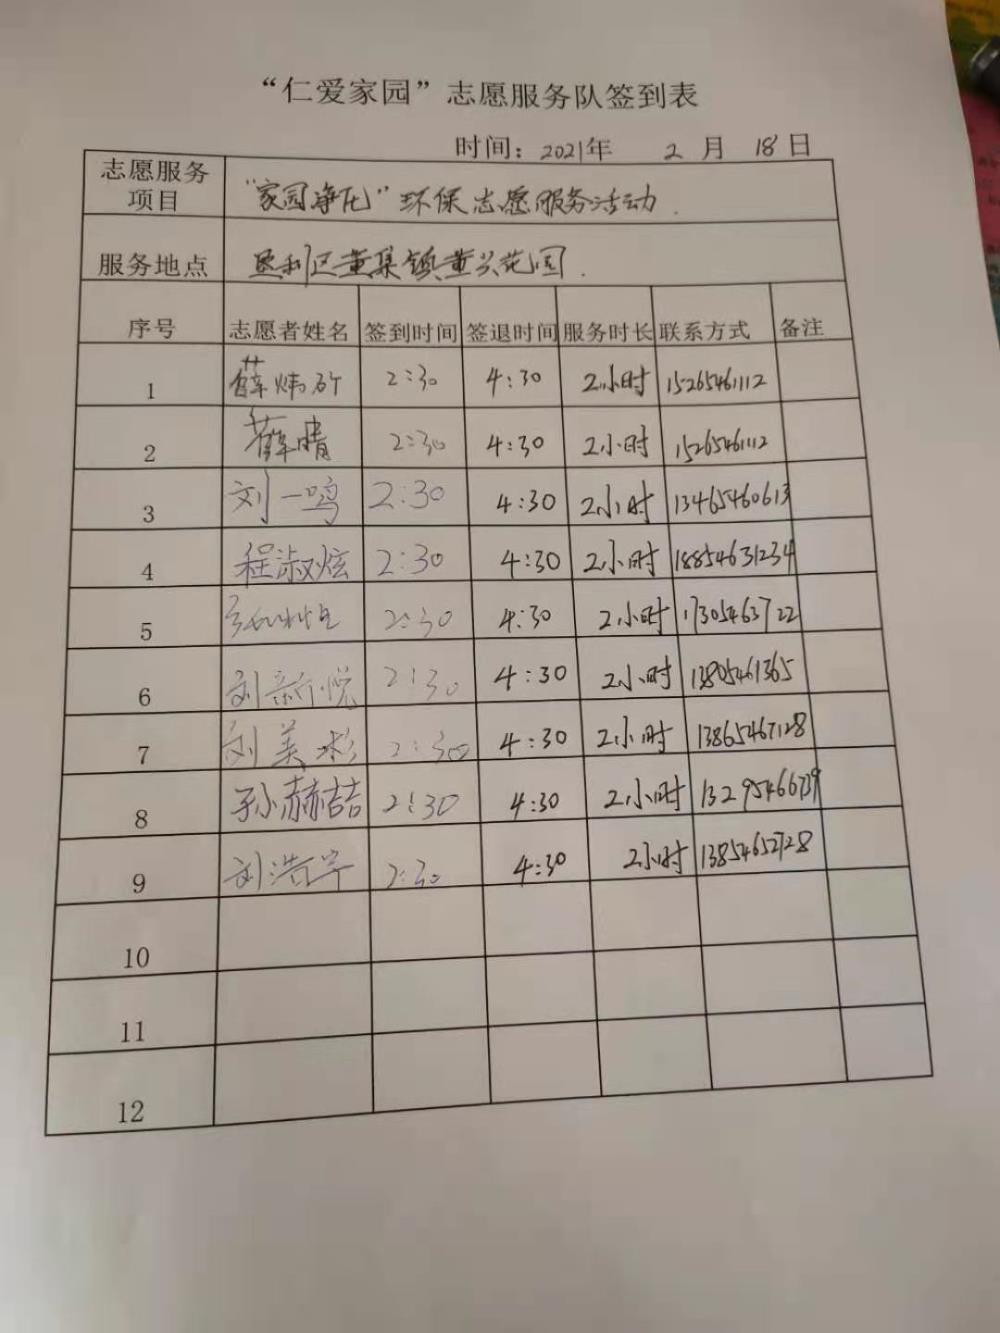 “仁爱家园”志愿服务队签到表
时间：2021年 2 月 18 日
志愿服务项目 “家园净化”环保志愿服务活动.
服务地点 垦利区董集镇董兴花园.
序号 志愿者姓名 签到时间 签退时间 服务时长 联系方式 备注
1 薛炜 2:30 4:30 2小时 15265461112
2 薛晴 2:30 4:30 2小时 15265461112
3 刘一鸣 2:30 4:30 2小时 13465460613
4 程淑炫 2:30 4:30 2小时 18854631234
5 2:30 4:30 2小时 17305463722
6 刘新悦 2:30 4:30 2小时 13805461365
7 刘美彤 2:30 4:30 2小时 13865467128
8 孙赫喆 2:30 4:30 2小时 13295466739
9 刘浩宇 2:30 4:30 2小时 13854652728
10
11
12